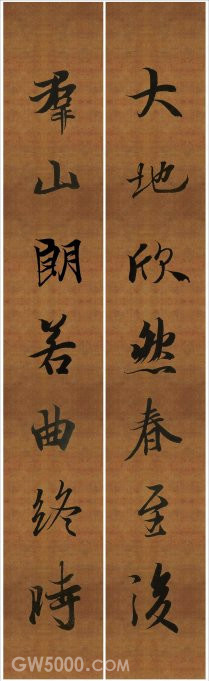 大地欣然春至後
羣山朗若曲終時
GW5000.com